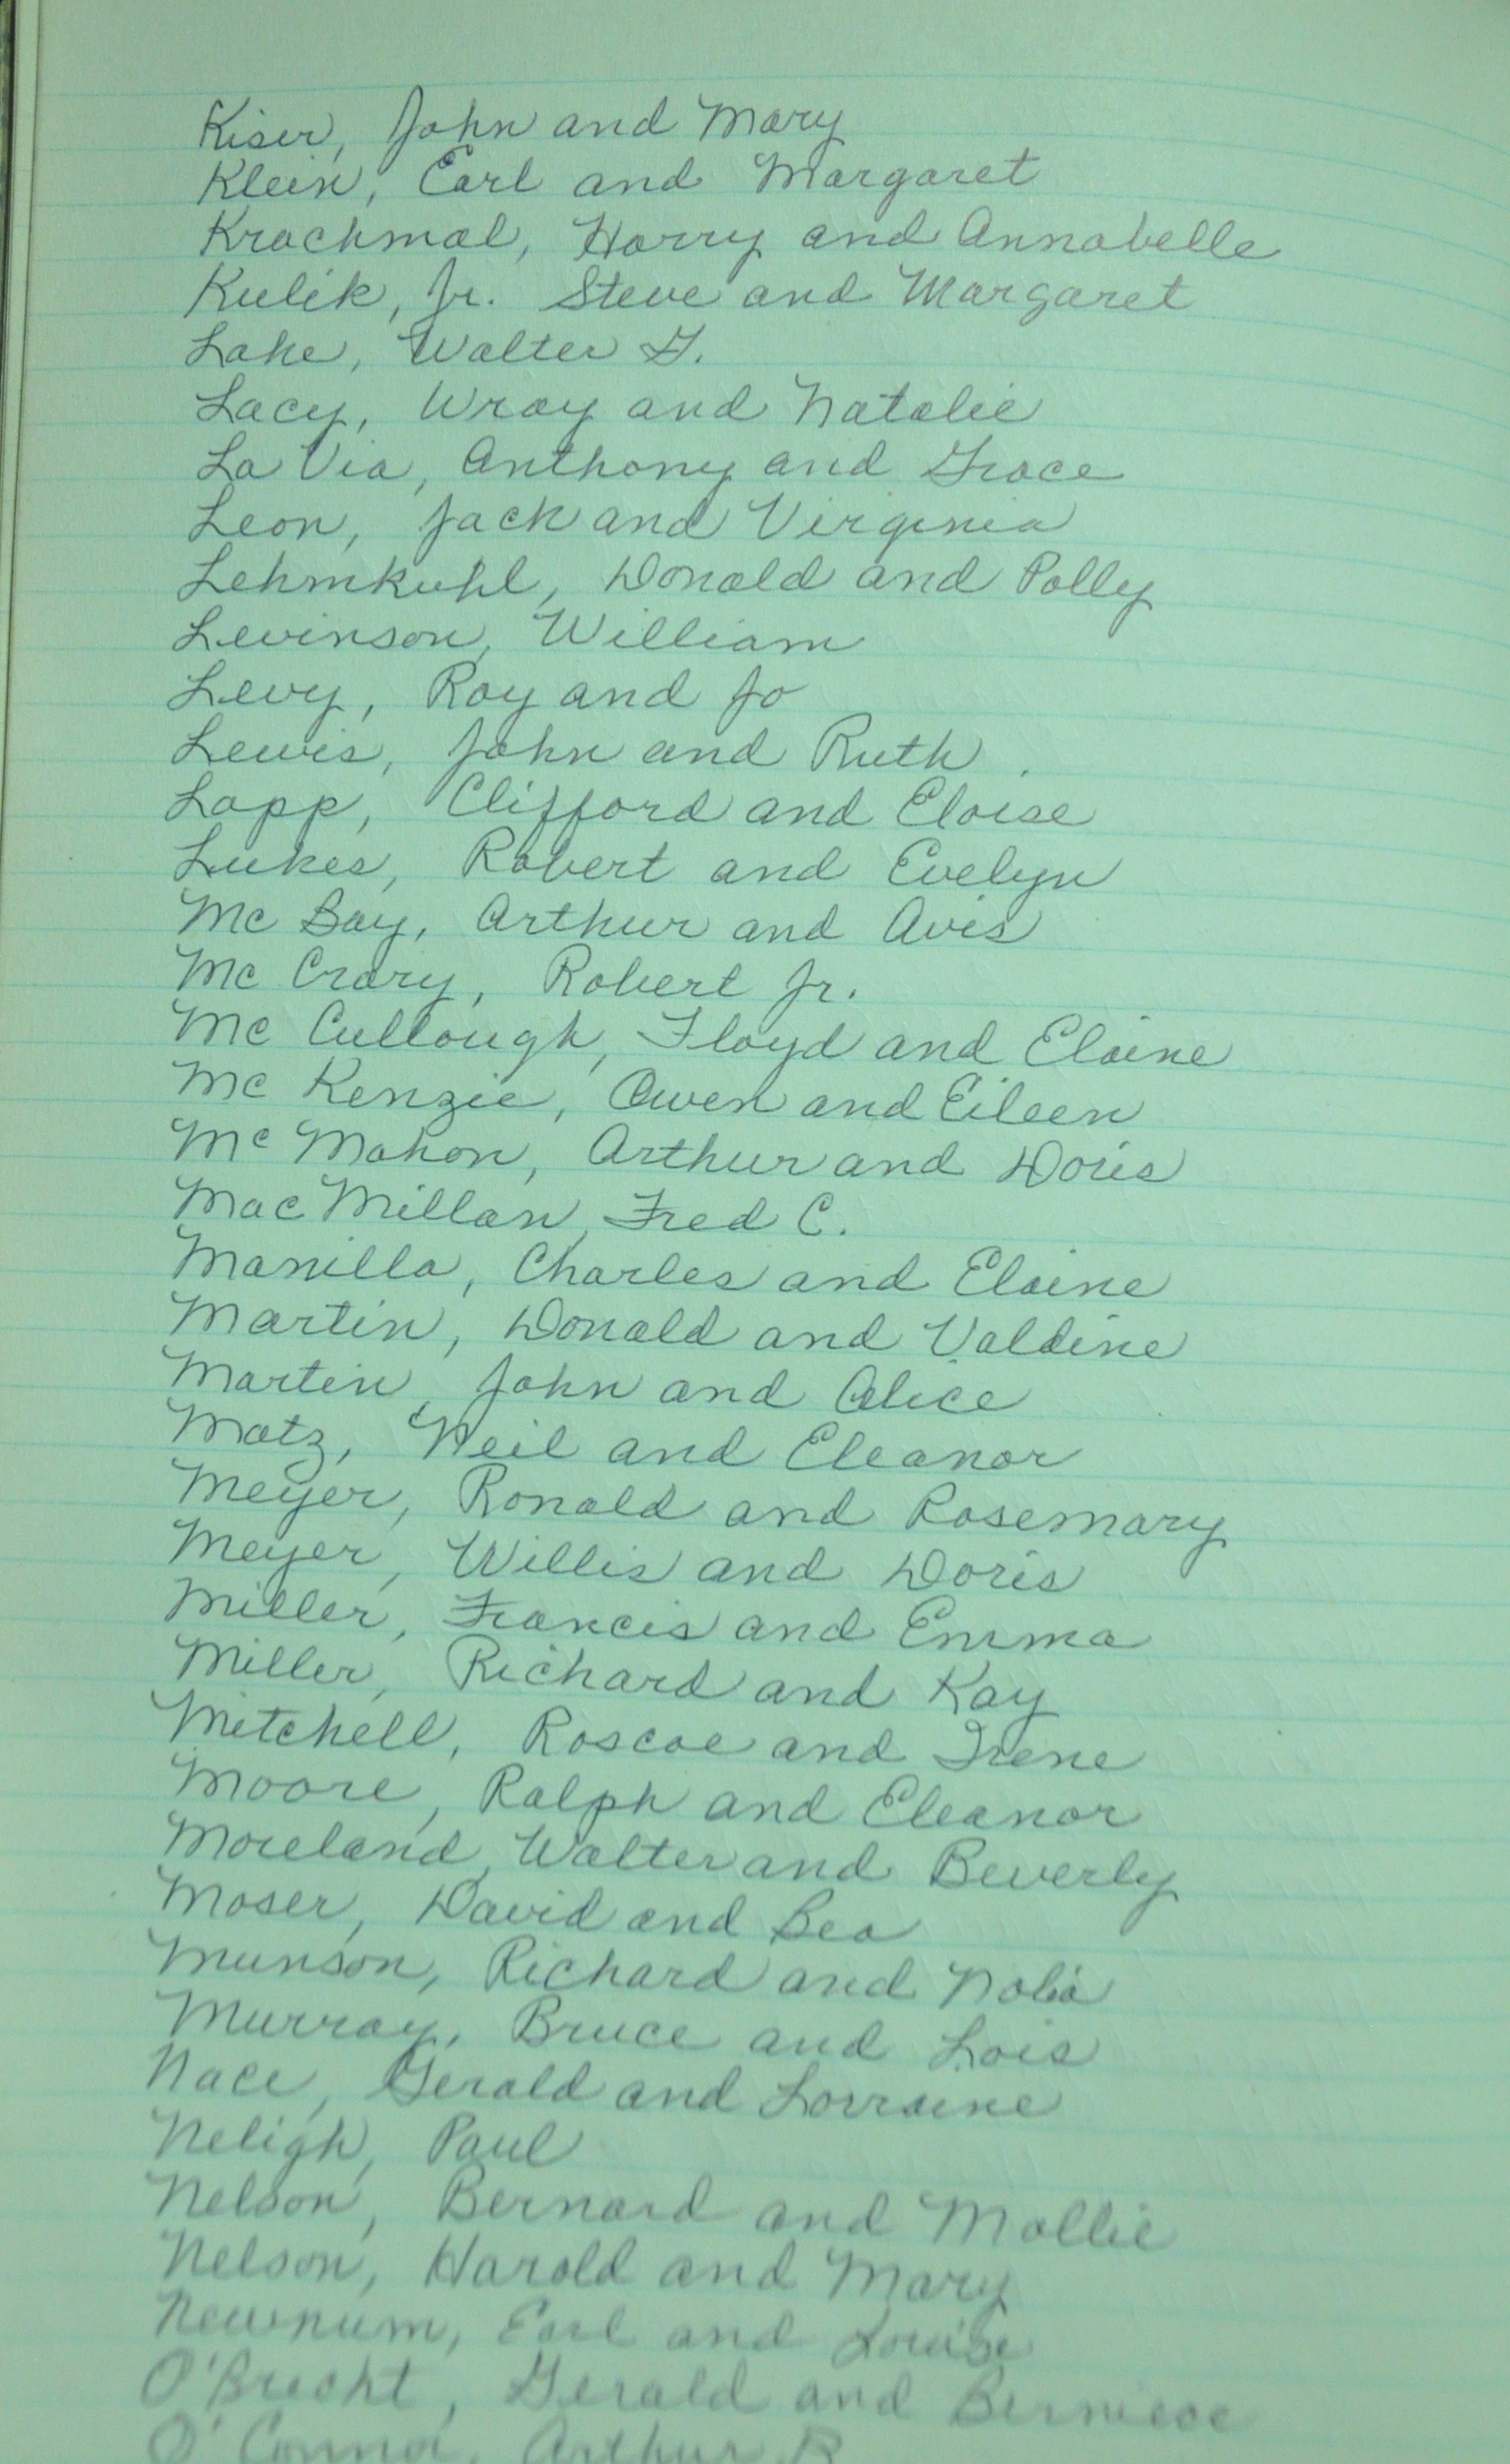 Kiser, John and Mary
Klein, Earl and Margaret
Krachmal, Harry and Annabelle
Kulik, Jr. Steve and Margaret
Lake, Walter G.
Lacy, Wray and Natalie
La Via, Anthony and Grace
Leon, Jack and Virginia
Lehmkuhl, Donald and Polly
Levinson, William
Levy, Roy and Jo
Lewis, John and Ruth
Lopp, Clifford and Eloise
Lukes, Robert and Evelyn
Mc Bay, Arthur and Avis
Mc Crary, Robert Jr.
Mc Cullough, Floyd and Elaine
Mc Kenzie, Owen and Eileen
Mc Mahon, Arthur and Doris
Mac Millan, Fred C.
Manilla, Charles and Elaine
Martin, Donald and Valdine
Martin, John and Alice
Matz, Neil and Eleanor
Meyer, Ronald and Rosemary
Meyer, Willis and Doris
Miller, Francis and Emma
Miller, Richard and Kay
Mitchell, Roscoe and Irene
Moore, Ralph and Eleanor
Moreland, Walter and Beverly
Moser, David and Bea
Munson, Richard and Nolia
Murray, Bruce and Lois
Nace, Gerald and Lorraine
Neligh, Paul
Nelson, Bernard and Mollie
Nelson, Harold and Mary
Newnum, Earl and Louise
O'Brecht, Gerald and Berniece
Arthur R